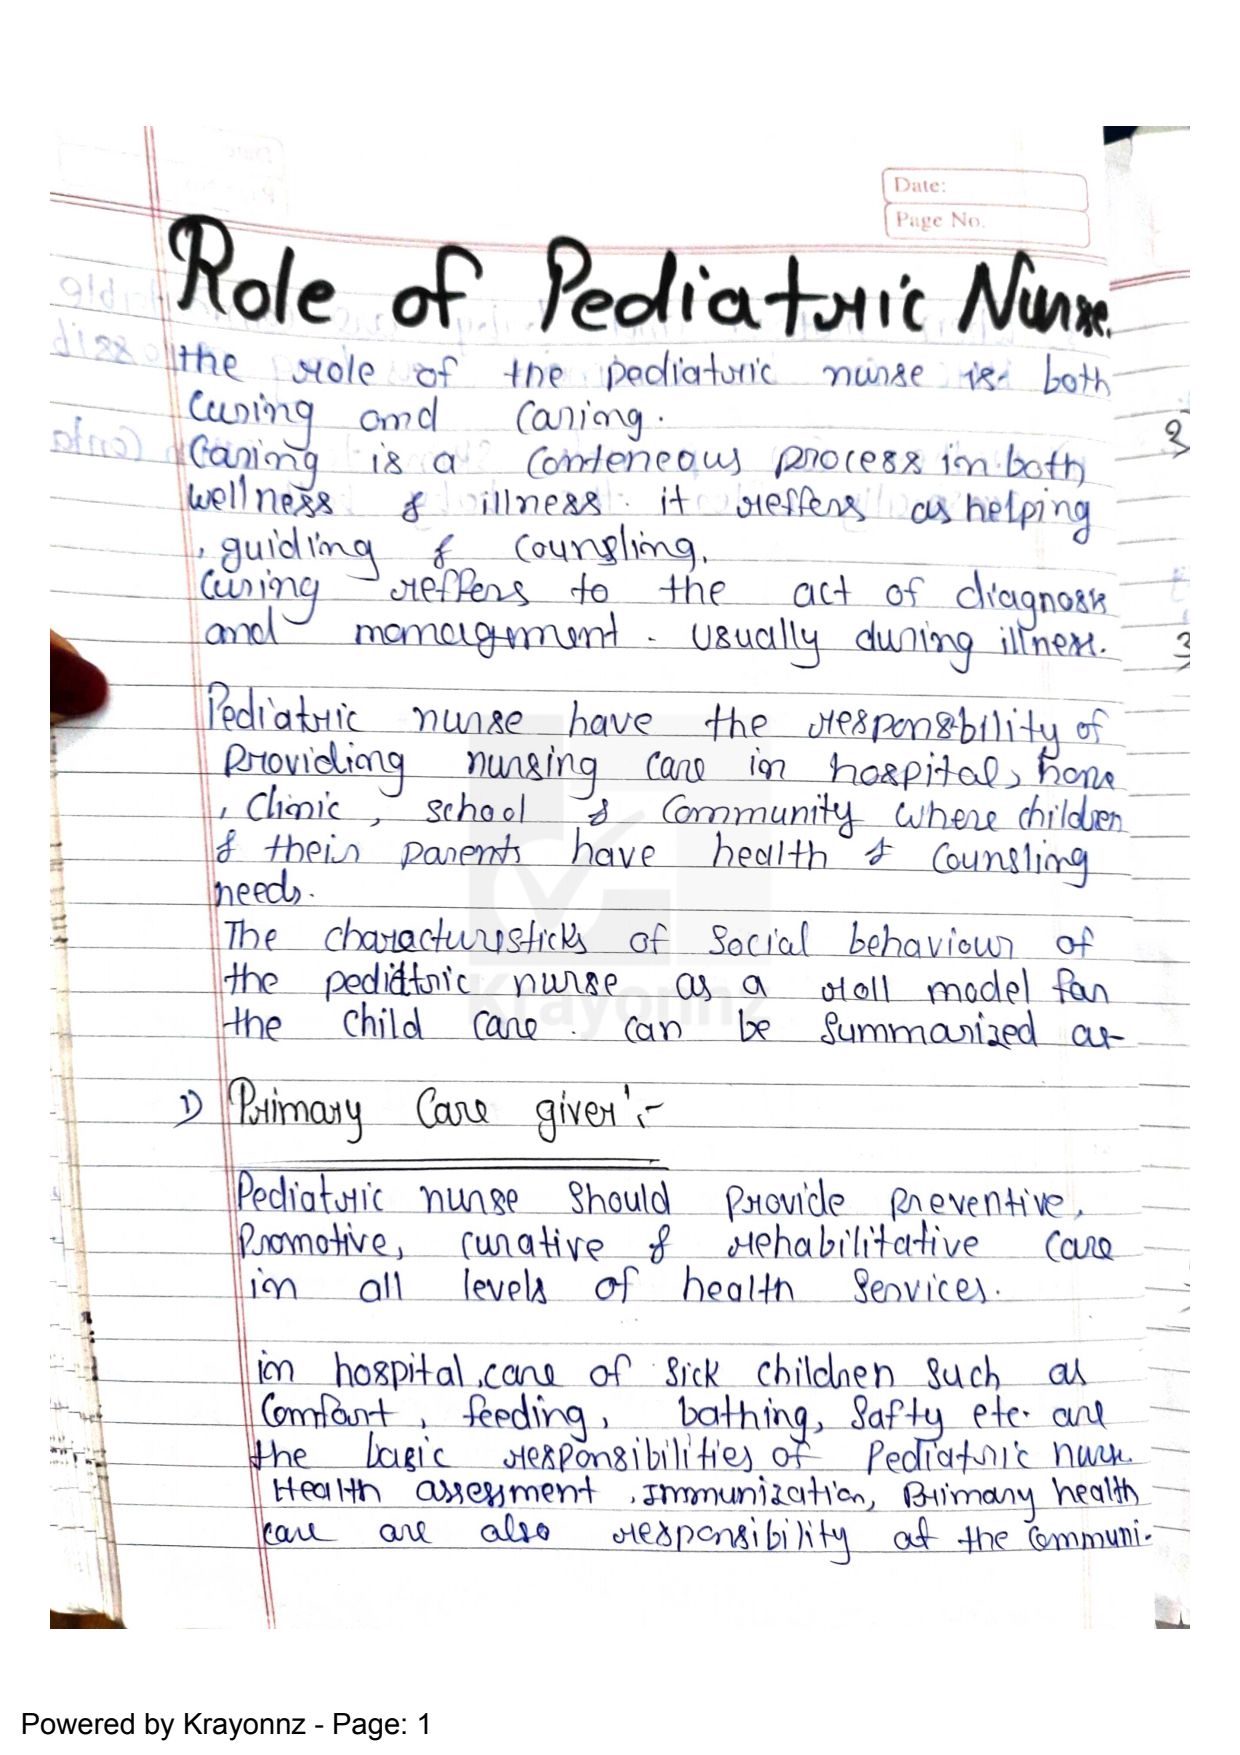 Date:
Page No.
Role of Pediatric Nurse.
the role of the pediatric nurse is both
Curing and Caring.
Caring is a Conteneous process in both
wellness & illness. it reffers as helping
, guiding & Counsling.
Curing reffers to the act of diagnosis
and management. Usually during illness.
Pediatric nurse have the responsbility of
Providing nursing care in hospital, home
, Clinic, school & Community where children
& their parents have health & Counsling
needs.
The characturisticks of Social behaviour of
the pediatric nurse as a roll model for
the child care. can be Summarized as-
1) Primary Care giver:-
Pediatric nurse Should Provide Preventive,
Promotive, curative & rehabilitative care
in all levels of health Services.
in hospital, care of Sick children Such as
Comfort, feeding, bathing, Safty etc. are
the basic responsibilities of Pediatric nurse.
Health assessment, Immunization, Primary health
care are also responsibility at the Communi-
Krayonnz
Powered by Krayonnz - Page: 1